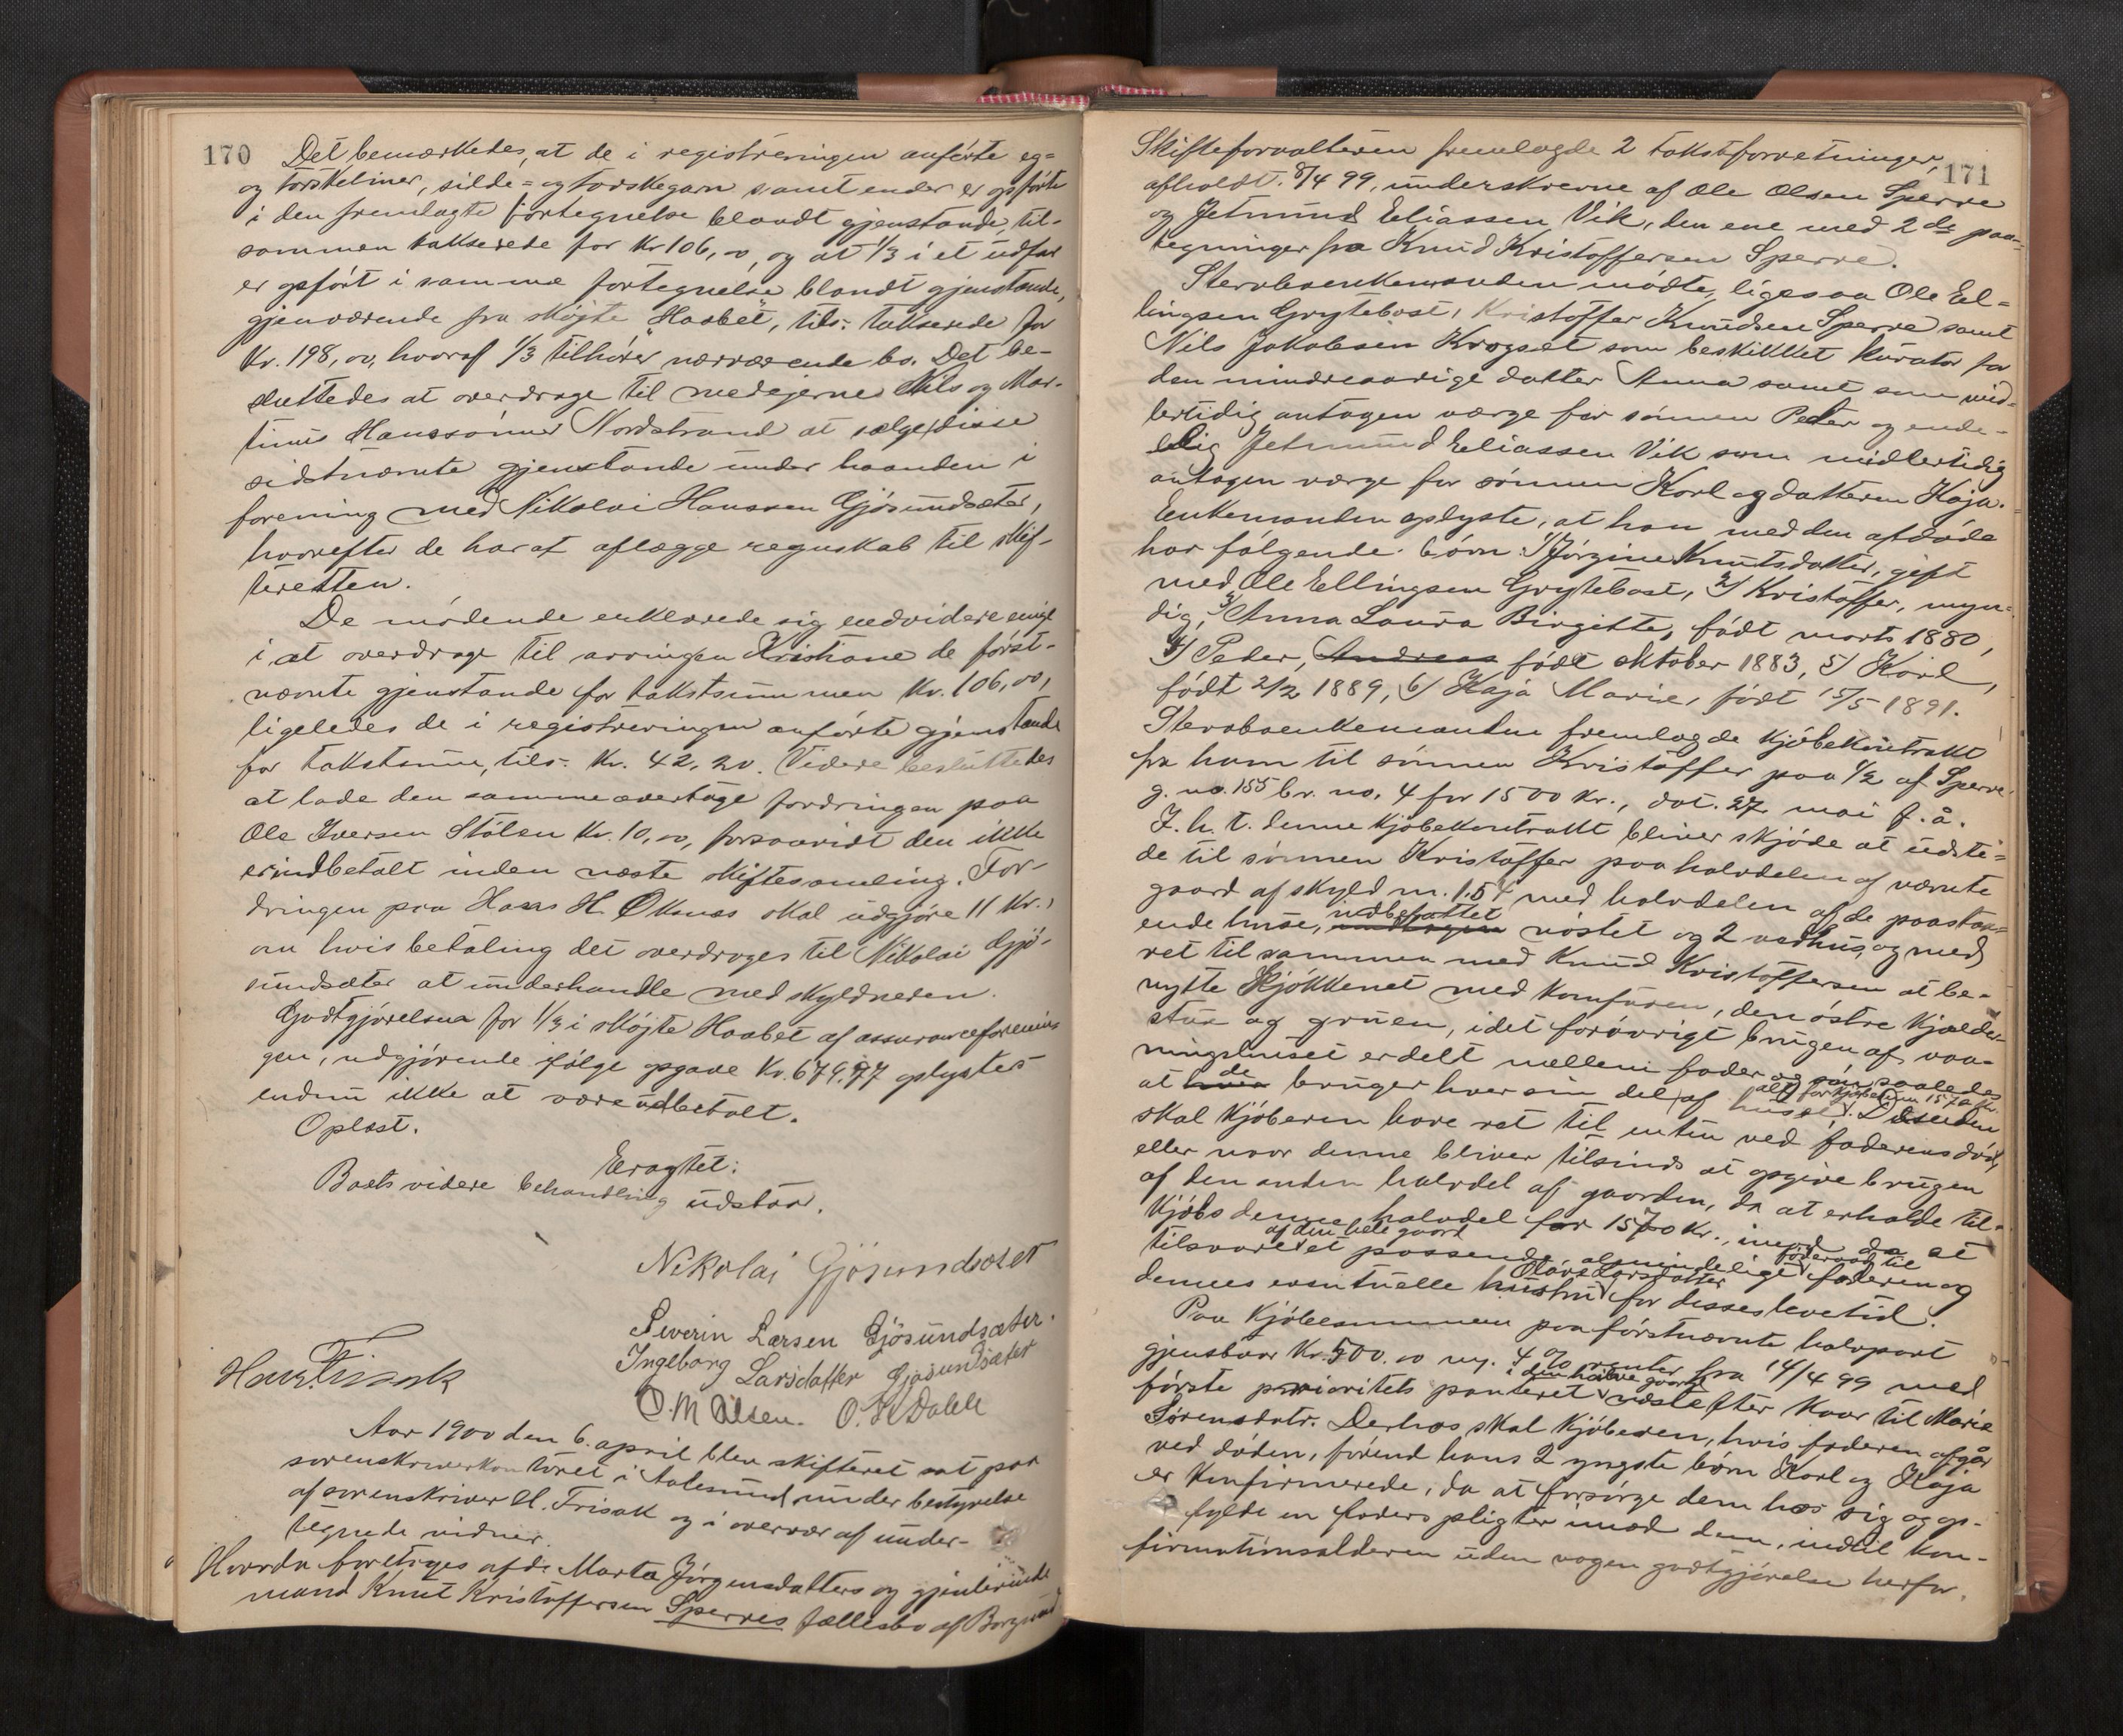 170
Det bemærkedes, at de i registreringen anførte eg=
og torskeliner, silde= og torskegarn samt ender er opførte
i den fremlagte fortegnelse blandt gjenstande, til-
sammen takserede for Kr 106,00, og at 1/3 i et udfar
er opført i samme fortegnelse blandt gjenstande,
gjenværende fra skøjte "Haabet", tils. takserede for
Kr. 198,00, hvoraf 1/3 tilhører nærværende bo. Det be-
sluttedes at overdrage til medejerne Nils og Mar-
tinus Hanssønner Nordstrand at sælge disse
sidstnævnte gjenstande under haanden i
forening med Nikolai Hanssen Gjøsundsæter,
hvorefter de har at aflægge regnskab til skif-
teretten.
De mødende erklærede sig endvidere enige
i at overdrage til arvingen Kristiane de først-
nævnte gjenstande for takstsummen Kr. 106,00,
ligeledes de i registreringen anførte gjenstande
for takstsum, tils. Kr. 42,20. Videre besluttedes
at lade den samme overtage fordringen paa
Ole Iversen Stølen Kr. 10,00, forsaavidt den ikke
er indbetalt inden næste skiftesamling. For-
dringen paa Hans H. Oksnes skal udgjøre 11 Kr.,
om hvis betaling det overdroges til Nikolai Gjø-
sundsæter at underhandle med skyldneren.
Godtgjørelsen for 1/3 i skøjte Haabet af assuranceforenin-
gen, udgjørende ifølge opgave Kr. 679,77 oplystes
endnu ikke at være udbetalt.
Oplæst.
Eragtet:
Boets videre behandling udstaar.
Nikolai Gjösundsæter
Severin Larsen Gjösundsæter.
Ingeborg Larsdatter Gjøsundsæter
Hans Frisak
O. M Olsen. O. K Dahle
Aar 1900 den 6. april blev skifteret sat paa
sorenskriverkontoret i Aalesund under bestyrelse
af sorenskriver H. Frisak og i overvær af under-
tegnede vidner.
Hvorda foretoges afd. Marta Jørgensdatters og gjenlevende
mand Knut Kristoffersen Sperres fællesbo af Borgund
171
Skifteforvalteren fremlagde 2 takstforretninger,
afholdt 8/4 99, underskrevne af Ole Olsen Sperre
og Jetmund Eliassen Vik, den ene med 2de paa-
tegninger fra Knud Kristoffersen Sperre.
Stervboenkemanden mødte, ligesaa Ole El=
lingsen Grytebøst, Kristoffer Knudsen Sperre samt
Nils Jakobsen Krogsæt som beskikket kurator for
den mindreaarige datter Anna samt som mid=
lertidig antagen værge for sønnen Peder og ende-
lig Jetmund Eliassen Vik som midlertidig
antagen værge for sønnen Karl og datteren Kaja.
Enkemanden oplyste, at han med den afdøde
har følgende børn: 1/ Jørgine Knutsdatter, gift
med Ole Ellingsen Grytebøst, 2/ Kristoffer, myn-
dig, 3/ Anna Laura Birgitte, født marts 1880,
4/ Peder, Andreas født oktober 1883, 5/ Karl,
født 2/2 1889, 6/ Kaja Marie, født 15/5 1891.
Stervboenkemanden fremlagde kjøbekontrakt
fra ham til sønnen Kristoffer paa 1/2 af Sperre
g. no. 155 br. no. 4 for 1500 Kr., dat. 27 mai f. å.
I. h. t. denne kjøbekontrakt bliver skjøde at udste=
de til sønnen Kristoffer paa halvdelen af nævnte
gaard af skyld m. 1.54 med halvdelen af de paastaa=
ende huse, indbefattet nøstet og 2 vedhus, og med
ret til sammen med Knud Kristoffersen at be-
nytte kjøkkenet med komfuren, den østre kjælder-
stue og gruen, idet forøvrigt brugen af vaa-
ningshuset er delt mellem fader og søn, saaledes
at de bruger hver sin del af huset, alt for kjøbesum 1570 Kr. Desuden
skal kjøberen have ret til enten ved faderens død,
eller naar denne bliver tilsinds at opgive brugen
af den anden halvdel af gaarden, da at erholde til-
kjøbs denne halvdel for 1570 Kr., imod da at
tilsvare af den hele gaard et passende, almindeligt føderaad til faderen og
dennes eventuelle hustru for disses levetid.
Paa kjøbesummen paa førstnævnte halvpart
gjenstaar Kr. 500.00 m. 4 % renter fra 14/4 99 med
første prioritets panteret i den halve gaard næstefter kaar til Marie
Sørensdatr. Derhos skal kjøberen, hvis faderen afgår
ved døden, førend hans 2 yngste børn Karl og Kaja
er konfirmerede, da at forsørge dem hos sig og op-
fylde en faders pligter imod dem, indtil kon-
firmationsalderen uden nogen godtgjørelse herfor.